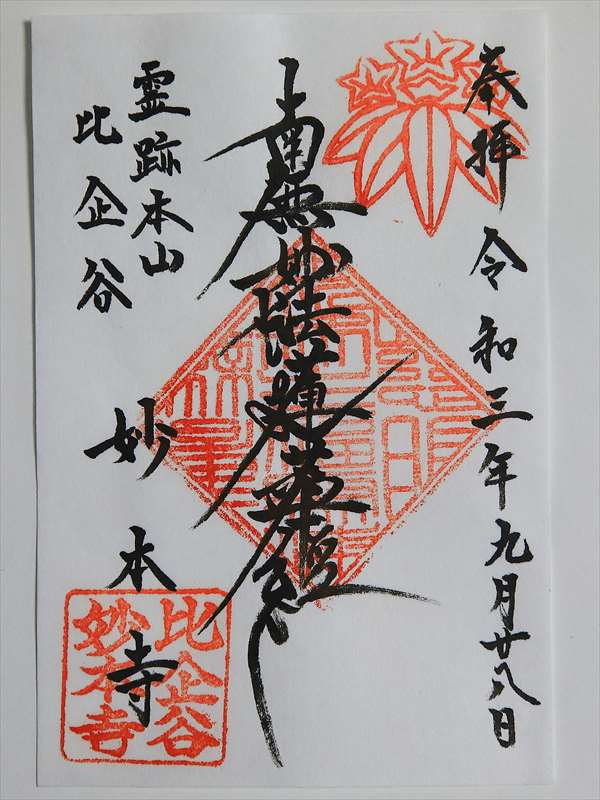 奉拝 令和三年九月廿八日
南無妙法蓮華経
霊跡本山
比企谷
妙本寺
比企谷
妙本寺